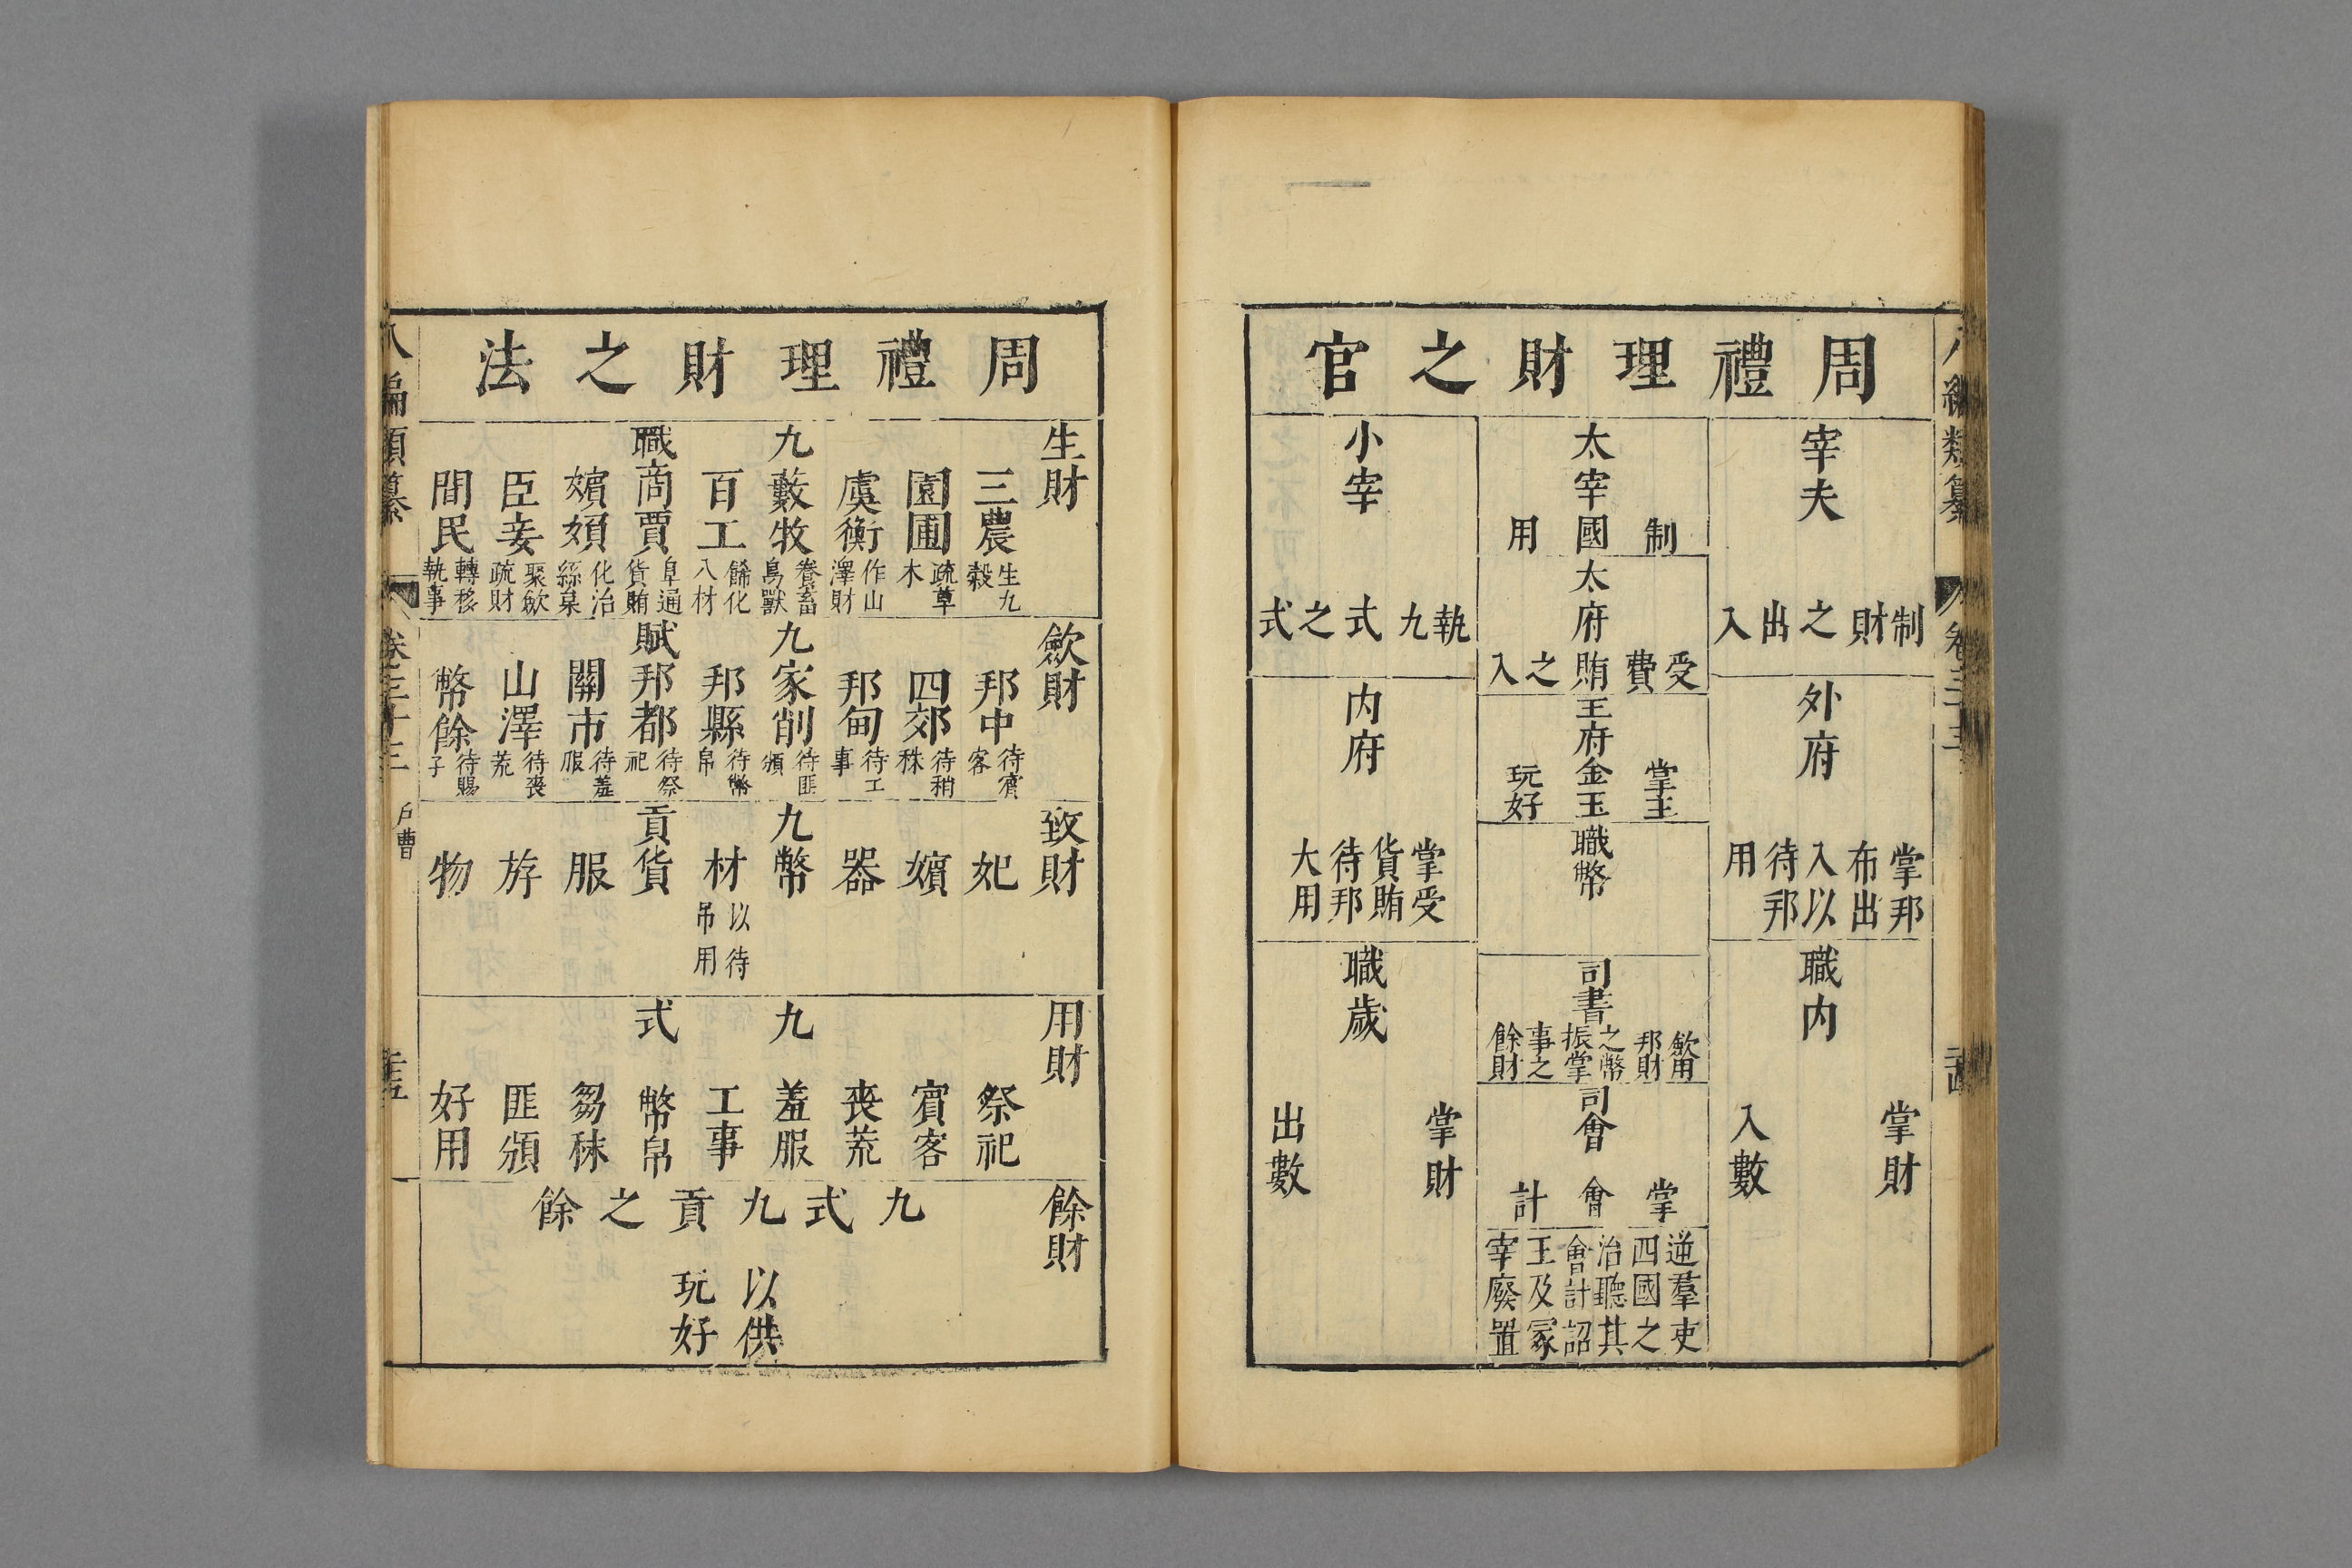 周禮理財之官
宰夫
制財之出入
外府
掌邦布出入以待邦用
職内
掌財入數
太宰
制國用
太府
受費賄之入
王府
掌王金玉玩好
職幣
司書
歛用邦財之幣振掌事之餘財
司會
掌會計
逆羣吏四國之治聽其會計詔王及冢宰廢置
小宰
執九式之式
内府
掌受貨賄待邦大用
職歲
掌財出數
周禮理財之法
生財
九職
三農生九穀
園圃疏草木
虞衡作山澤財
藪牧養畜鳥獸
百工餙化八材
商賈阜通貨賄
嬪婦化治絲枲
臣妾聚歛疏財
間民轉移執事
歛財
九賦
邦中待賓客
四郊待稍秣
邦甸待工事
家削待匪頒
邦縣待幣帛
邦都待祭祀
關市待羞服
山澤待喪荒
幣餘待賜予
致財
九貢
祀
嬪
器
幣
材
貨
服
斿
物
以待弔用
用財
九式
祭祀
賓客
喪荒
羞服
工事
幣帛
芻秣
匪頒
好用
餘財
九式九貢之餘
以供玩好
八編類纂
卷三十三
戶曹